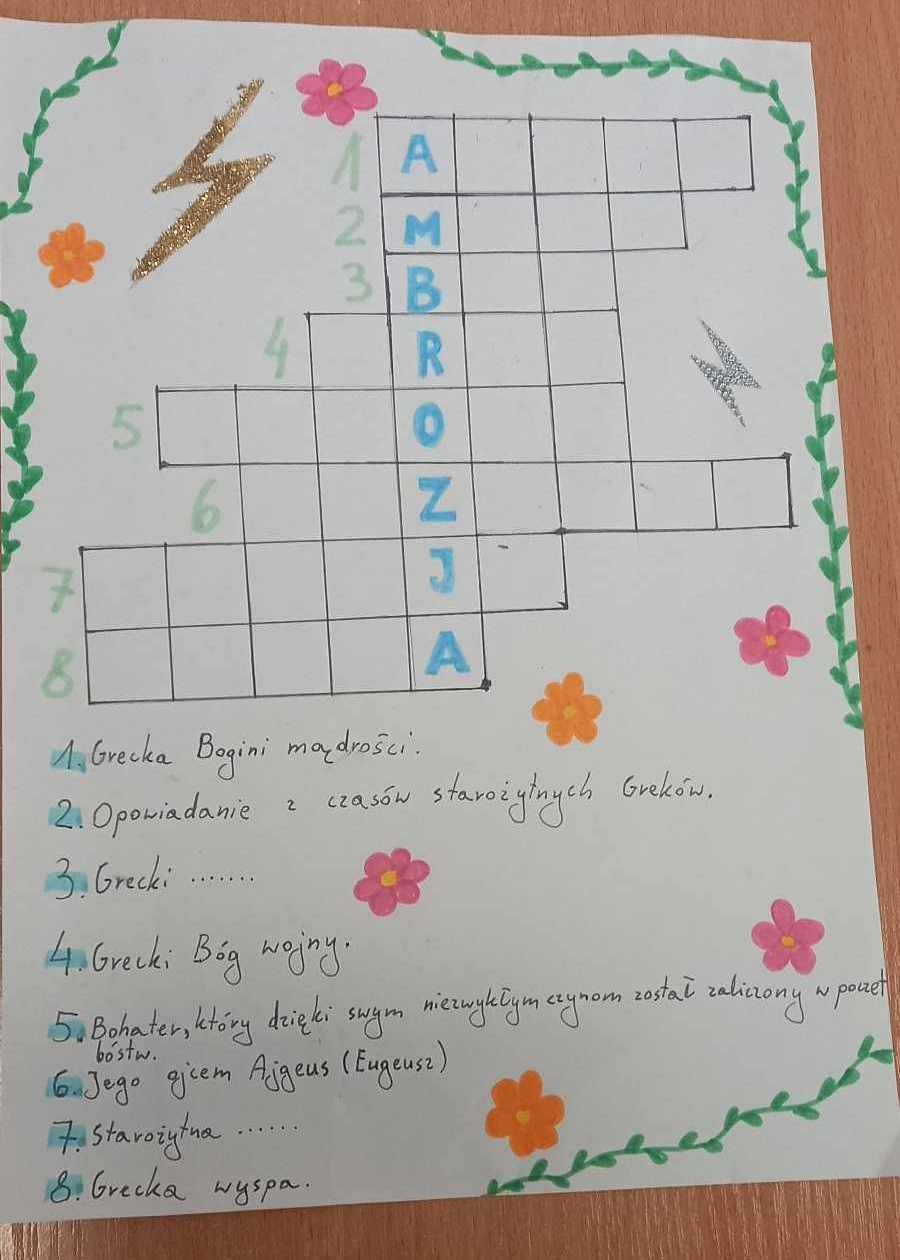 1 A
2 M
3 B
4 R
5 O
6 Z
7 J
8 A
1. Grecka Bogini mądrości.
2. Opowiadanie z czasów starożytnych Greków.
3. Grecki .......
4. Grecki Bóg wojny.
5. Bohater, który dzięki swym niezwykłym czynom został zaliczony w poczet
bóstw.
6. Jego ojcem Ajgeus (Eugeusz)
7. Starożytna ......
8. Grecka wyspa.